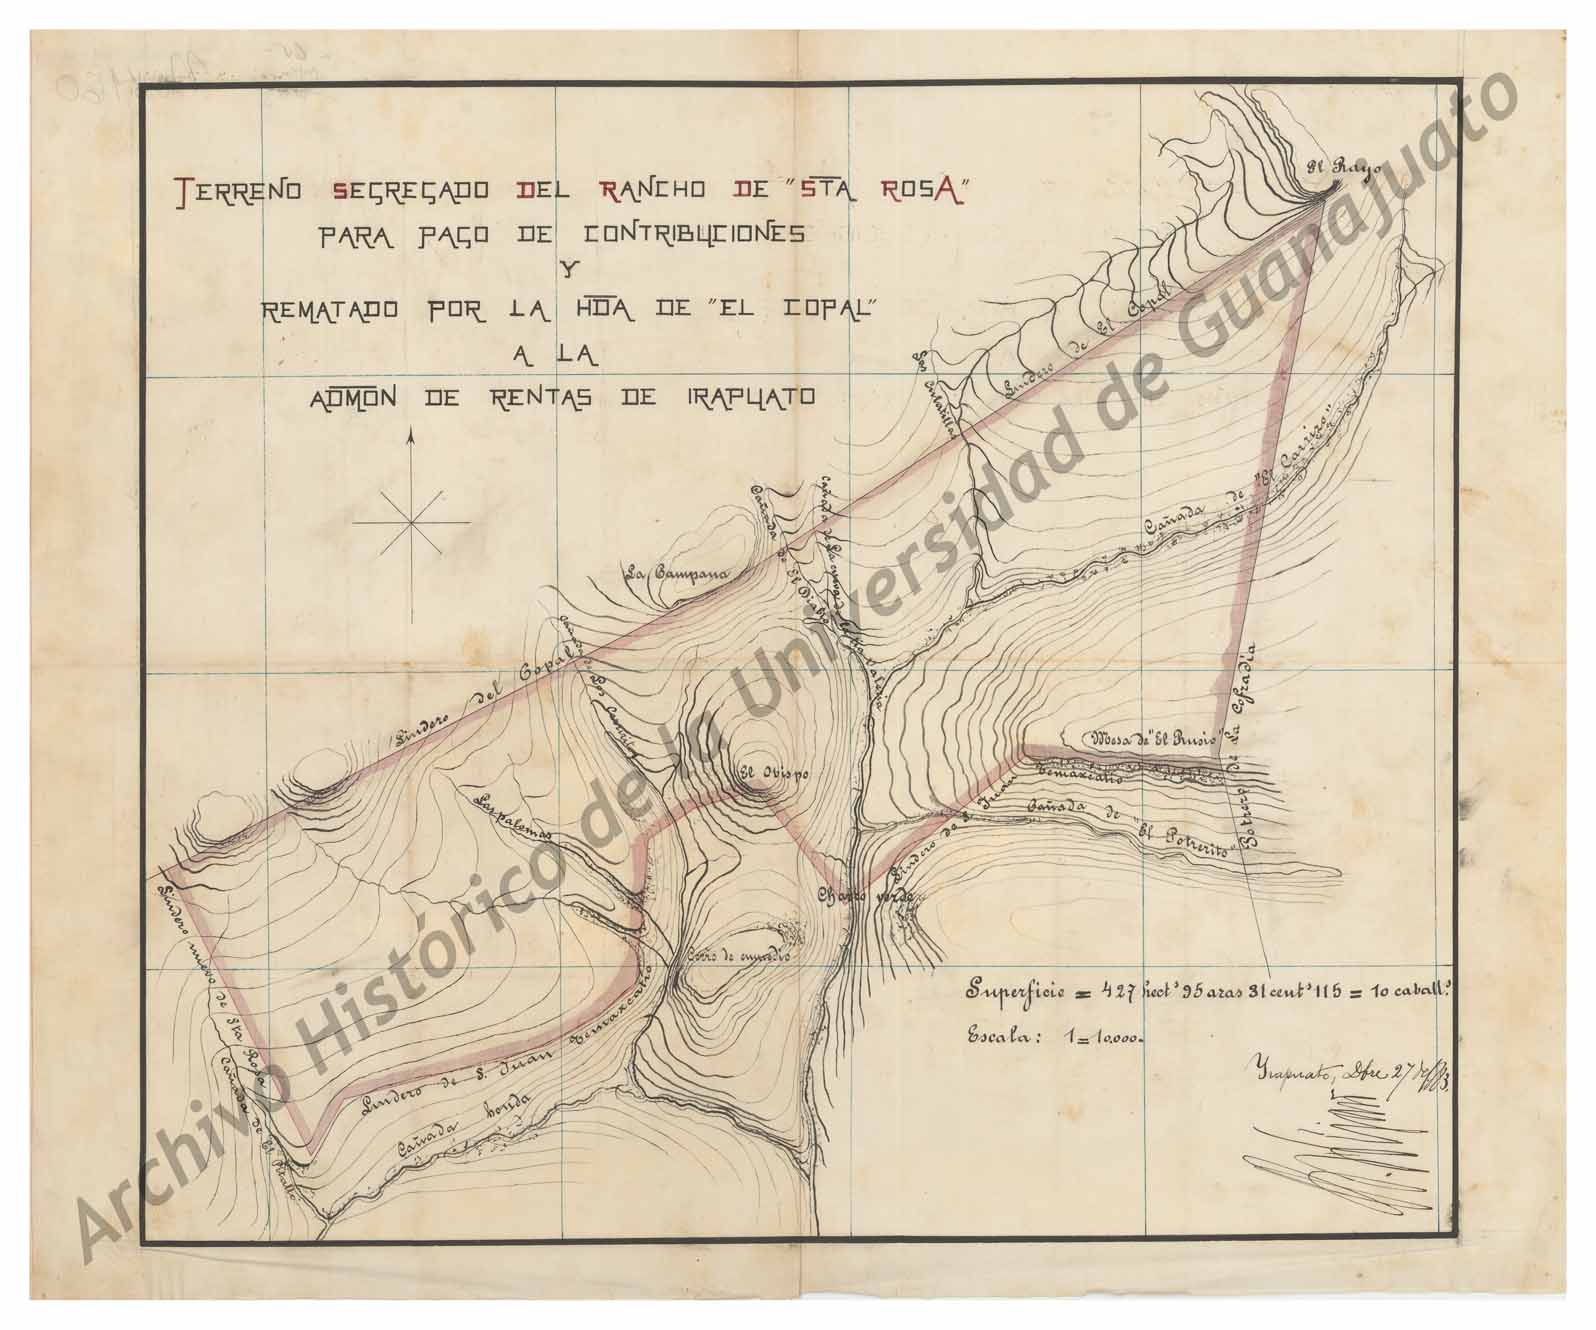 TERRENO SEGREGADO DEL RANCHO DE "STA ROSA"
PARA PAGO DE CONTRIBUCIONES
Y
REMATADO POR LA HDA DE "EL COPAL"
A LA
ADMON DE RENTAS DE IRAPUATO
El Rayo
Lindero de El Copal
Cañada de "El Carrizo"
Cañada de El Diablo
La Campana
Lindero del Copal
Potrero de La Cofradía
Mesa de "El Rusio"
Temaxcatio
Cañada de "El Potrerito"
El Obispo
Las palomas
Lindero de S. Juan
Charco verde
Cerro de enmedio
Lindero nuevo de Sta Rosa
Cañada de El Pitallo
Lindero de S. Juan Temaxcatio
Cañada honda
Superficie = 427 hects 95 aras 31 cents 115 = 10 caballs
Escala: 1=10.000.
Irapuato, Dbre 27 de
Archivo Histórico de la Universidad de Guanajuato